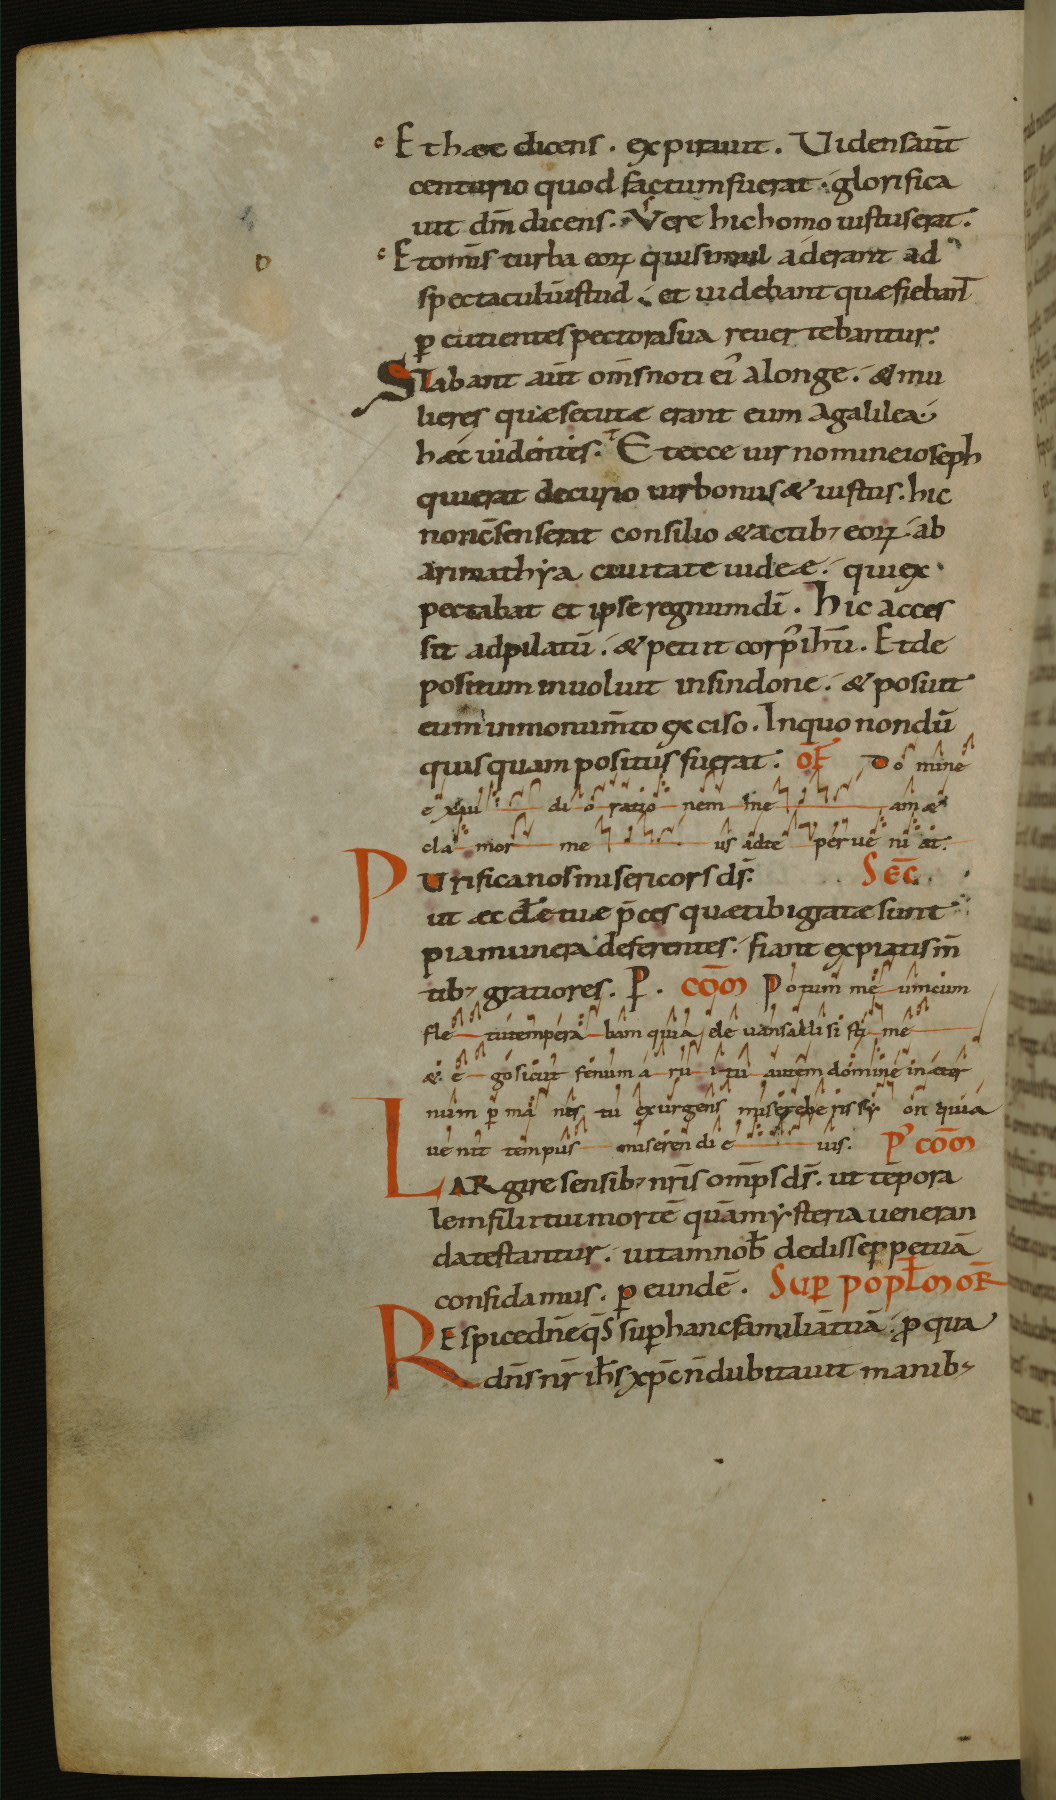 c Et haec dicens . expirauit . Uidens aut̄
centurio quod factum fuerat . glorifica
uit dm̄ dicens . Vere hic homo iustus erat .
c Et om̄s turba eoꝝ qui simul aderant ad
spectaculū istud . et uidebant quae fiebant
ꝑcutientes pectora sua reuertebantur .
Stabant aūt om̄s noti ei' a longe . & mu
lieres quae secutae erant eum a galilea .
haec uidentes . Et ecce uir nomine ioseph
qui erat decurio uir bonus & iustus . hic
non c̄senserat consilio & actib; eoꝝ . ab
arimathya ciuitate iudeae . qui ex
pectabat et ipse regnum dī . Hic acces
sit ad pilatū . & petiit corp' ih̄u . Et de
positum inuoluit in sindone . & posuit
eum in monum̄to exciso . In quo nondū
quisquam positus fuerat . OF̄ Domine
exau di orationem me am &
clamor me us ad te perueniat .
Purifica nos misericors dš . SEC̄ .
ut aeccl̄e tuae p̄ces quae tibi gratae sunt
pia munera deferentes . fiant expiatis m̄
tib; gratiores . P . COM̄ Potum meum cum
fletu temperabam quia eleuans allisisti me
&́ ego sicut fenum arui tu autem domine in aeter
num ꝑmanes tu exurgens misereberis syon quia
uenit tempus miserendi e ius . P' COM̄
LARgire sensib; nr̄is omp̄s dš . ut tēpora
lem filii tui mortē quā mysteria ueneran
da testantur . uitam nob̄ dedisse ꝑpetuā
confidamus . ꝑ eundē . SUꝐ POPL̄M OR̄
REspice dn̄e qs̄ suꝑ hanc familiā tuā . ꝓ qua
dn̄s nr̄ ih̄s xp̄c n̄ dubitauit manib;